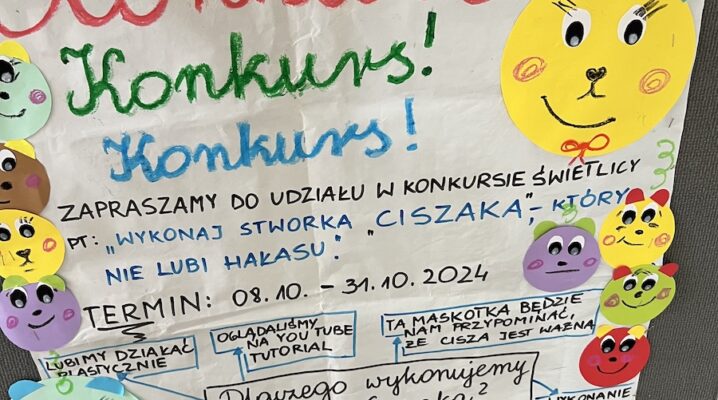 Konkurs!
Konkurs!
ZAPRASZAMY DO UDZIAŁU W KONKURSIE ŚWIETLICY
PT: „WYKONAJ STWORKA „CISZAKA”,- KTÓRY
NIE LUBI HAŁASU".
TERMIN: 08.10. – 31.10.2024
LUBIMY DZIAŁAĆ
PLASTYCZNIE
OGLĄDALIŚMY
NA YOU TUBE
TUTORIAL
TA MASKOTKA BĘDZIE
NAM PRZYPOMINAĆ,
ŻE CISZA JEST WAŻNA
Dlaczego wykonujemy
WYKONANIE